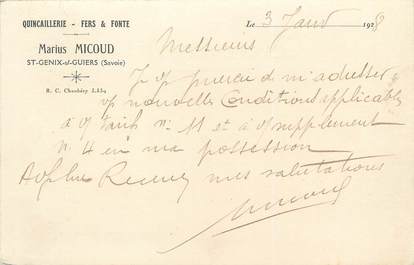 QUINCAILLERIE - FERS & FONTE
Marius MICOUD
ST-GENIX-s/-GUIERS (Savoie)
R. C. Chambéry
Le 3 Janv 1928
Messieurs
m'adresser
nouvelles Conditions applicables
à v/ tarif n. 11 et à v/ supplément
n. 4 en ma possession
Recevez mes salutations
Micoud